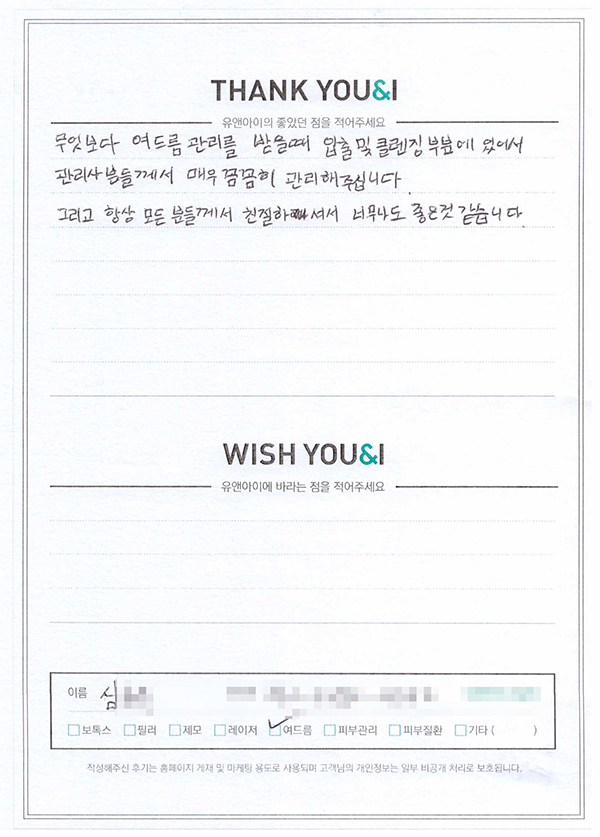 THANK YOU&I
유앤아이의 좋았던 점을 적어주세요
무엇보다 여드름 관리를 받을때 압출 및 클렌징 부분에 있어서
관리사분들께서 매우 꼼꼼히 관리해주십니다
그리고 항상 모든 분들께서 친절하셔서 너무나도 좋은것 같습니다.
WISH YOU&I
유앤아이에 바라는 점을 적어주세요
이름 심
보톡스 필러 제모 레이저 여드름 피부관리 피부질환 기타 ( )
작성해주신 후기는 홈페이지 게재 및 마케팅 용도로 사용되며 고객님의 개인정보는 일부 비공개 처리로 보호됩니다.